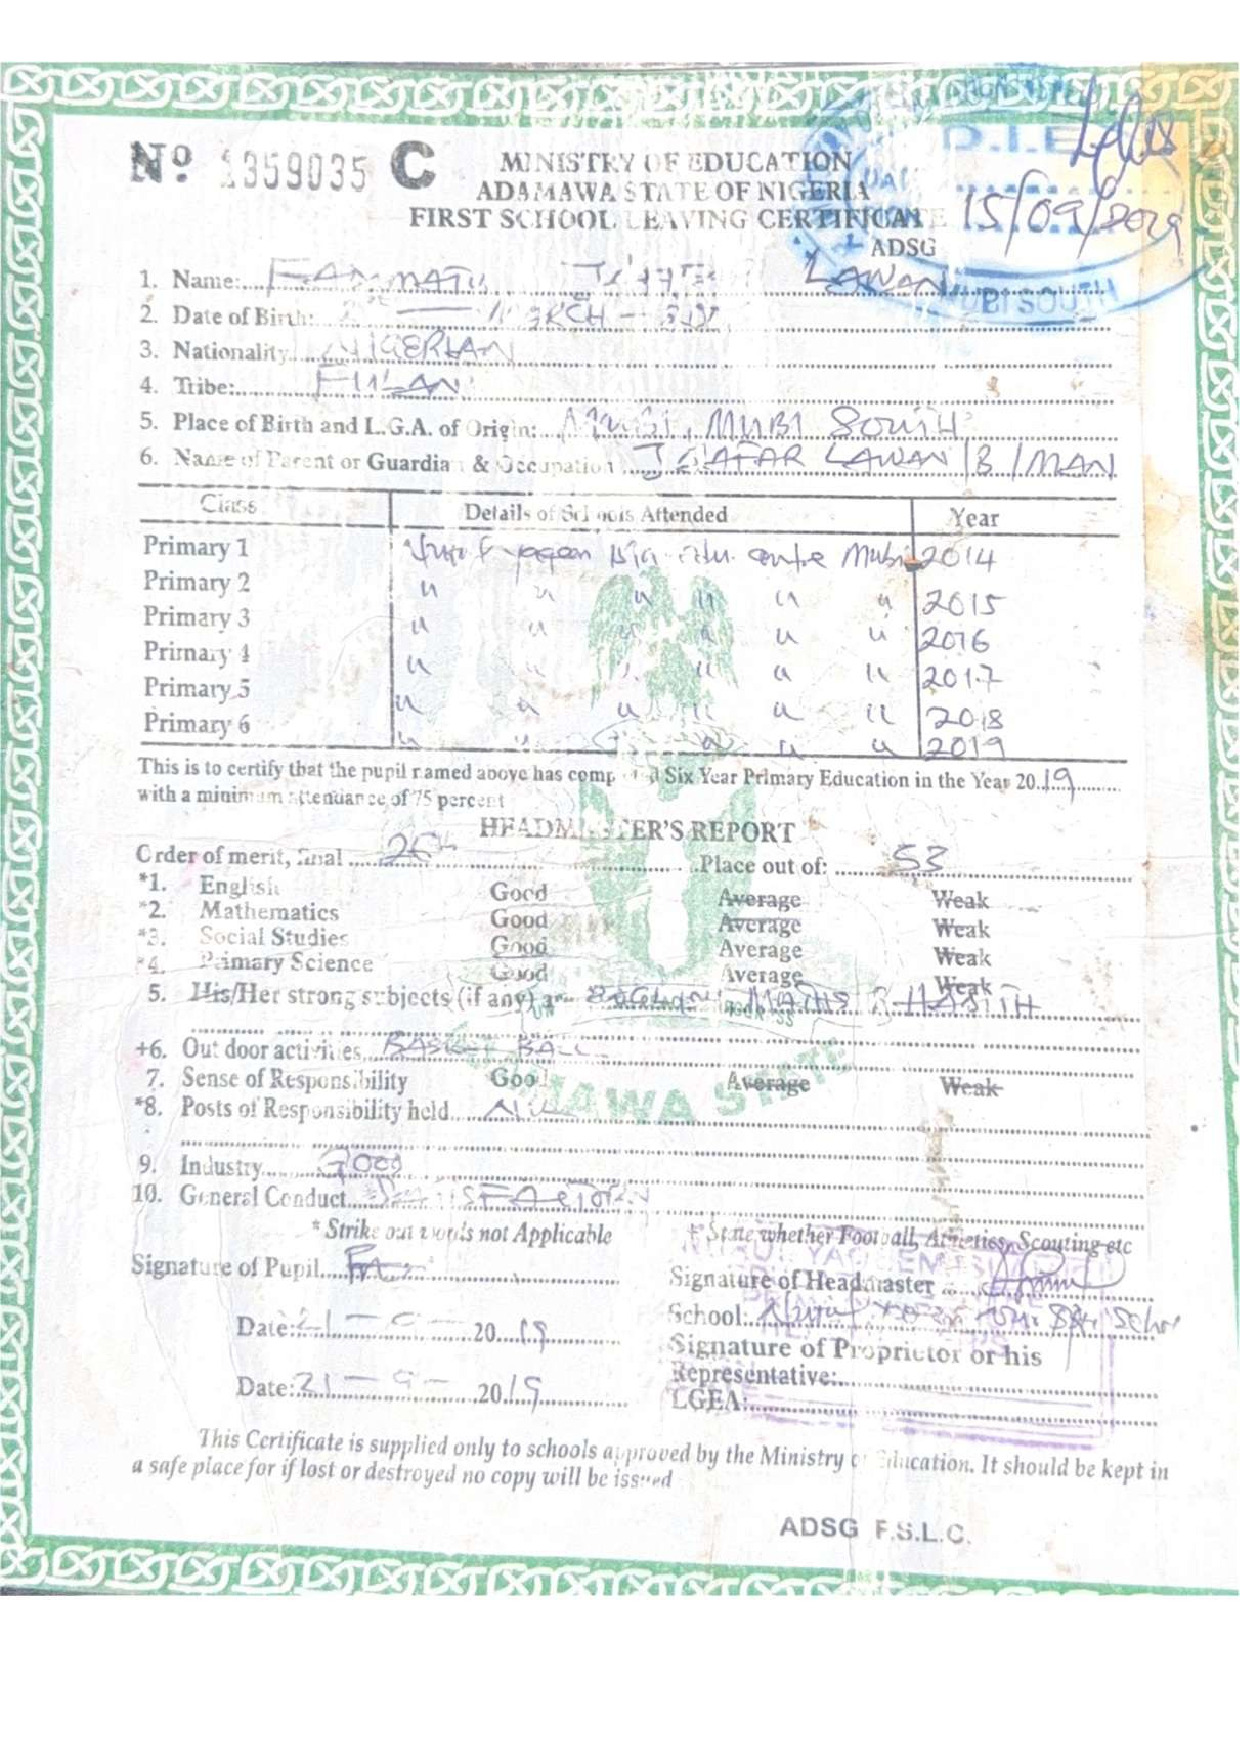 Nº 1359035 C
MINISTRY OF EDUCATION
ADAMAWA STATE OF NIGERIA
FIRST SCHOOL LEAVING CERTIFICATE
ADSG
D.I.E
15/09/2029
MUBI SOUTH
1. Name: LAWAN
2. Date of Birth: MARCH
3. Nationality NIGERIAN
4. Tribe: FULANI
5. Place of Birth and L.G.A. of Origin: MUBI, MUBI SOUTH
6. Name of Parent or Guardian & Occupation JAAFAR LAWAN / B / MAN
Class Details of Schools Attended Year
Primary 1 centre Mubi 2014
Primary 2 " " " " " " 2015
Primary 3 " " " " " " 2016
Primary 4 " " " " " " 2017
Primary 5 " " " " " " 2018
Primary 6 " " " " " " 2019
This is to certify that the pupil named above has completed Six Year Primary Education in the Year 2019
with a minimum attendance of 75 percent
HEADMASTER'S REPORT
Order of merit, final 26th Place out of: 53
*1. English Good Average Weak
*2. Mathematics Good Average Weak
*3. Social Studies Good Average Weak
*4. Primary Science Good Average Weak
5. His/Her strong subjects (if any) are ENGLISH MATHS
+6. Out door activities BASKET BALL
7. Sense of Responsibility Good Average Weak
*8. Posts of Responsibility held Nil
9. Industry Good
10. General Conduct SATISFACTORY
* Strike out words not Applicable
+ State whether Football, Athletics, Scouting etc
Signature of Pupil
Signature of Headmaster
Date: 21 - 9 - 2019
School:
Signature of Proprietor or his
Representative:
Date: 21 - 9 - 2019
LGEA:
This Certificate is supplied only to schools approved by the Ministry of Education. It should be kept in
a safe place for if lost or destroyed no copy will be issued
ADSG F.S.L.C.
ADAMAWA STATE